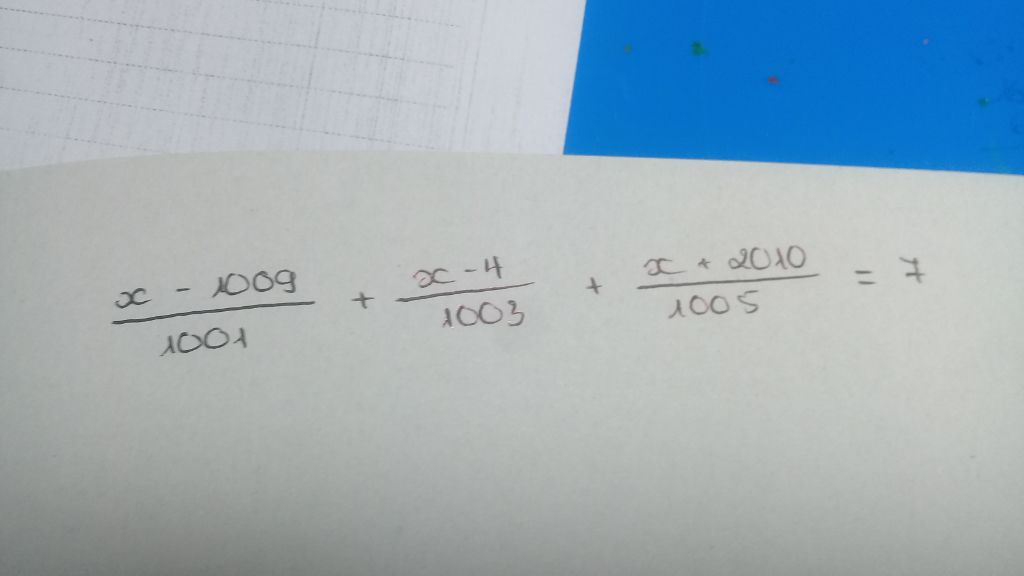 \frac{x - 1009}{1001} + \frac{x - 4}{1003} + \frac{x + 2010}{1005} = 7